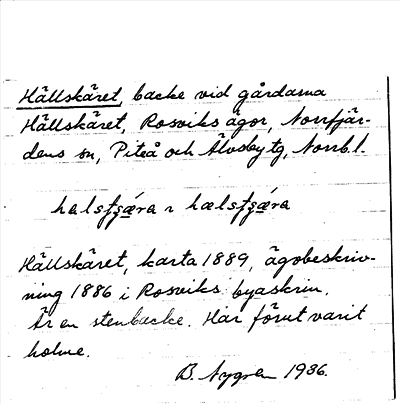 Hällskäret, backe vid gårdarna
Hällskäret, Rosviks ägor, Norrfjär-
dens sn, Piteå och Älvsby tg, Norrb. l.
Hällskäret, karta 1889, ägobeskriv-
ning 1886 i Rosviks byaskrin.
Är en stenbacke. Har förut varit
holme.
B. Nygren 1936.